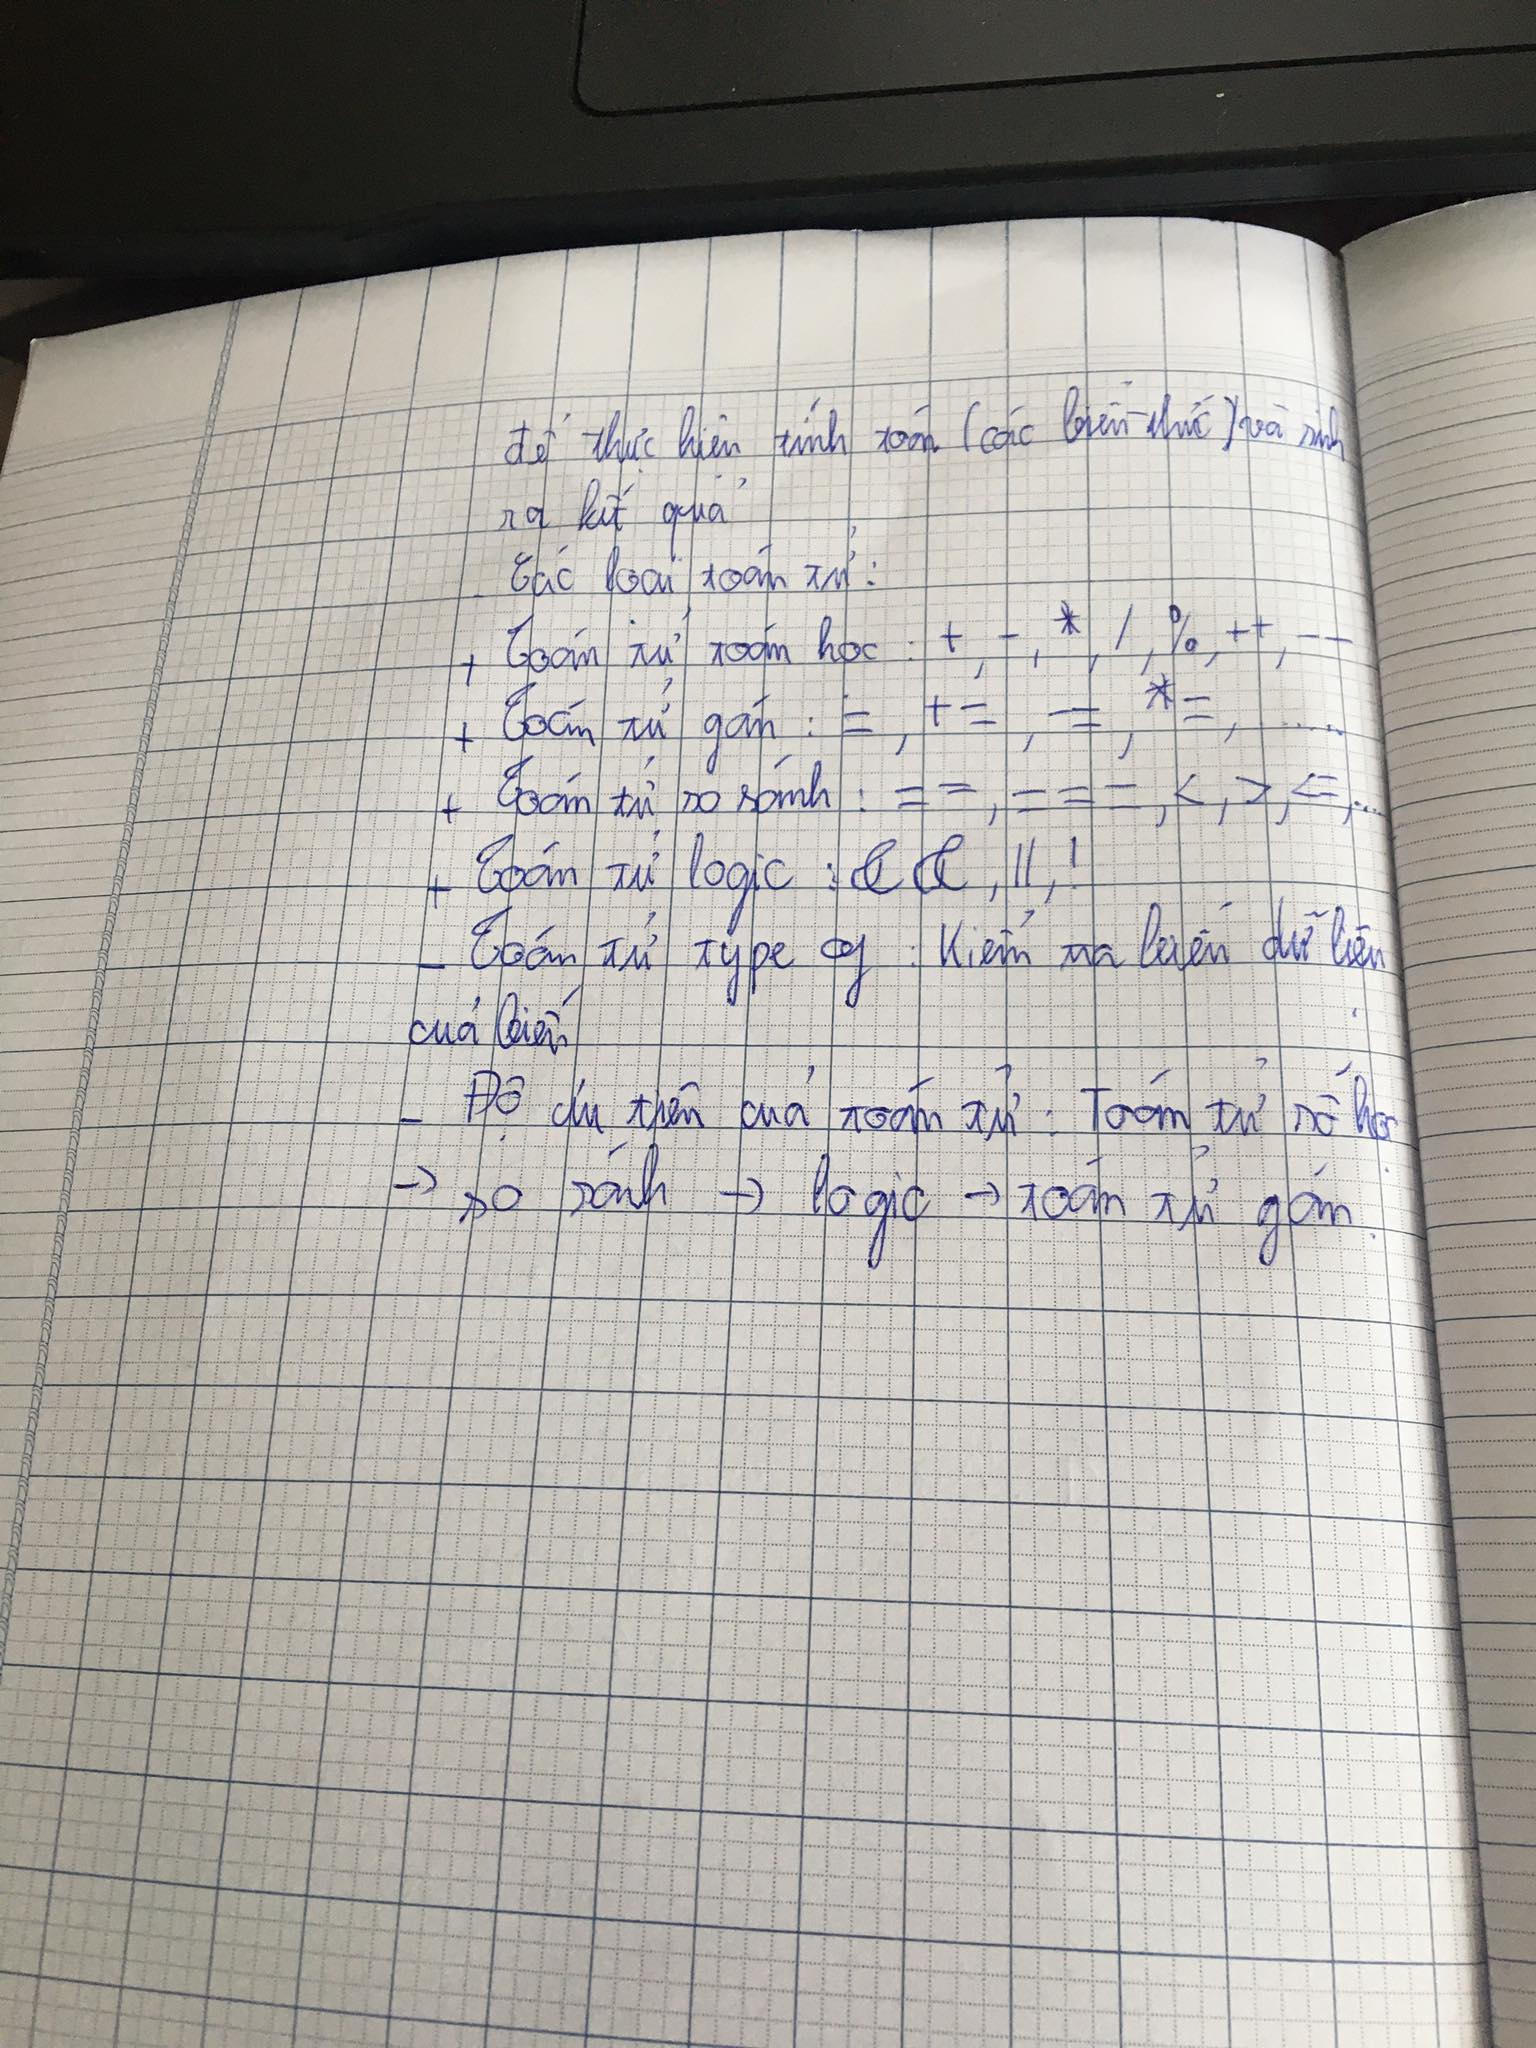 để thực hiện tính toán (các biến thức) và sinh
ra kết quả
- Các loại toán tử:
+ Toán tử toán học : +, -, *, /, %, ++, --
+ Toán tử gán : =, +=, -=, *=, .....
+ Toán tử so sánh : ==, ===, <, >, <=, ...
+ Toán tử logic : &&, ||, !
- Toán tử type of : Kiểm tra kiểu dữ liệu
của biến
- Độ ưu tiên của toán tử : Toán tử số học
-> so sánh -> logic -> toán tử gán